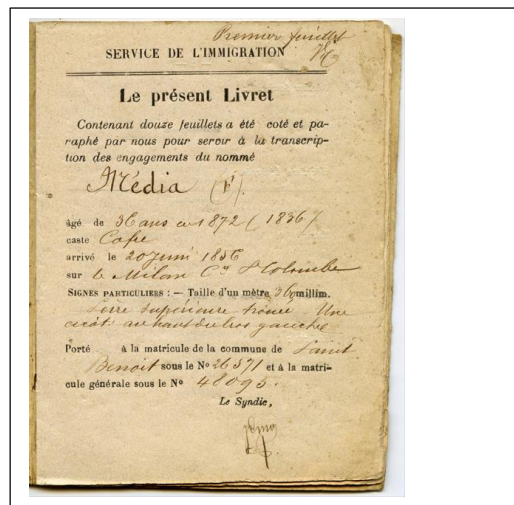 Premier feuillet
SERVICE DE L'IMMIGRATION
Le présent Livret
Contenant douze feuillets a été coté et pa-
raphé par nous pour servir à la transcrip-
tion des engagements du nommé
Média (F).
âgé de 36 ans en 1872 (1836)
caste Cafre
arrivé le 20 juin 1856
sur le Milan Cne Colombe
SIGNES PARTICULIERS : — Taille d'un mètre millim.
Lèvre supérieure Une
cicat. au haut du bras gauche
Porté à la matricule de la commune de Saint
Benoit sous le No 26571 et à la matri-
cule générale sous le No 48095.
Le Syndic,